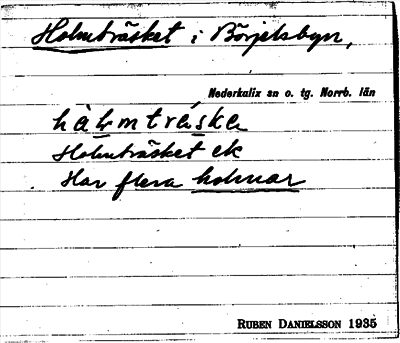 Holmträsket i Börjelsbyn,
Nederkalix sn o. tg. Norrb. län
hàłmtráska
Holmträsket ek
Har flera holmar
RUBEN DANIELSSON 1935